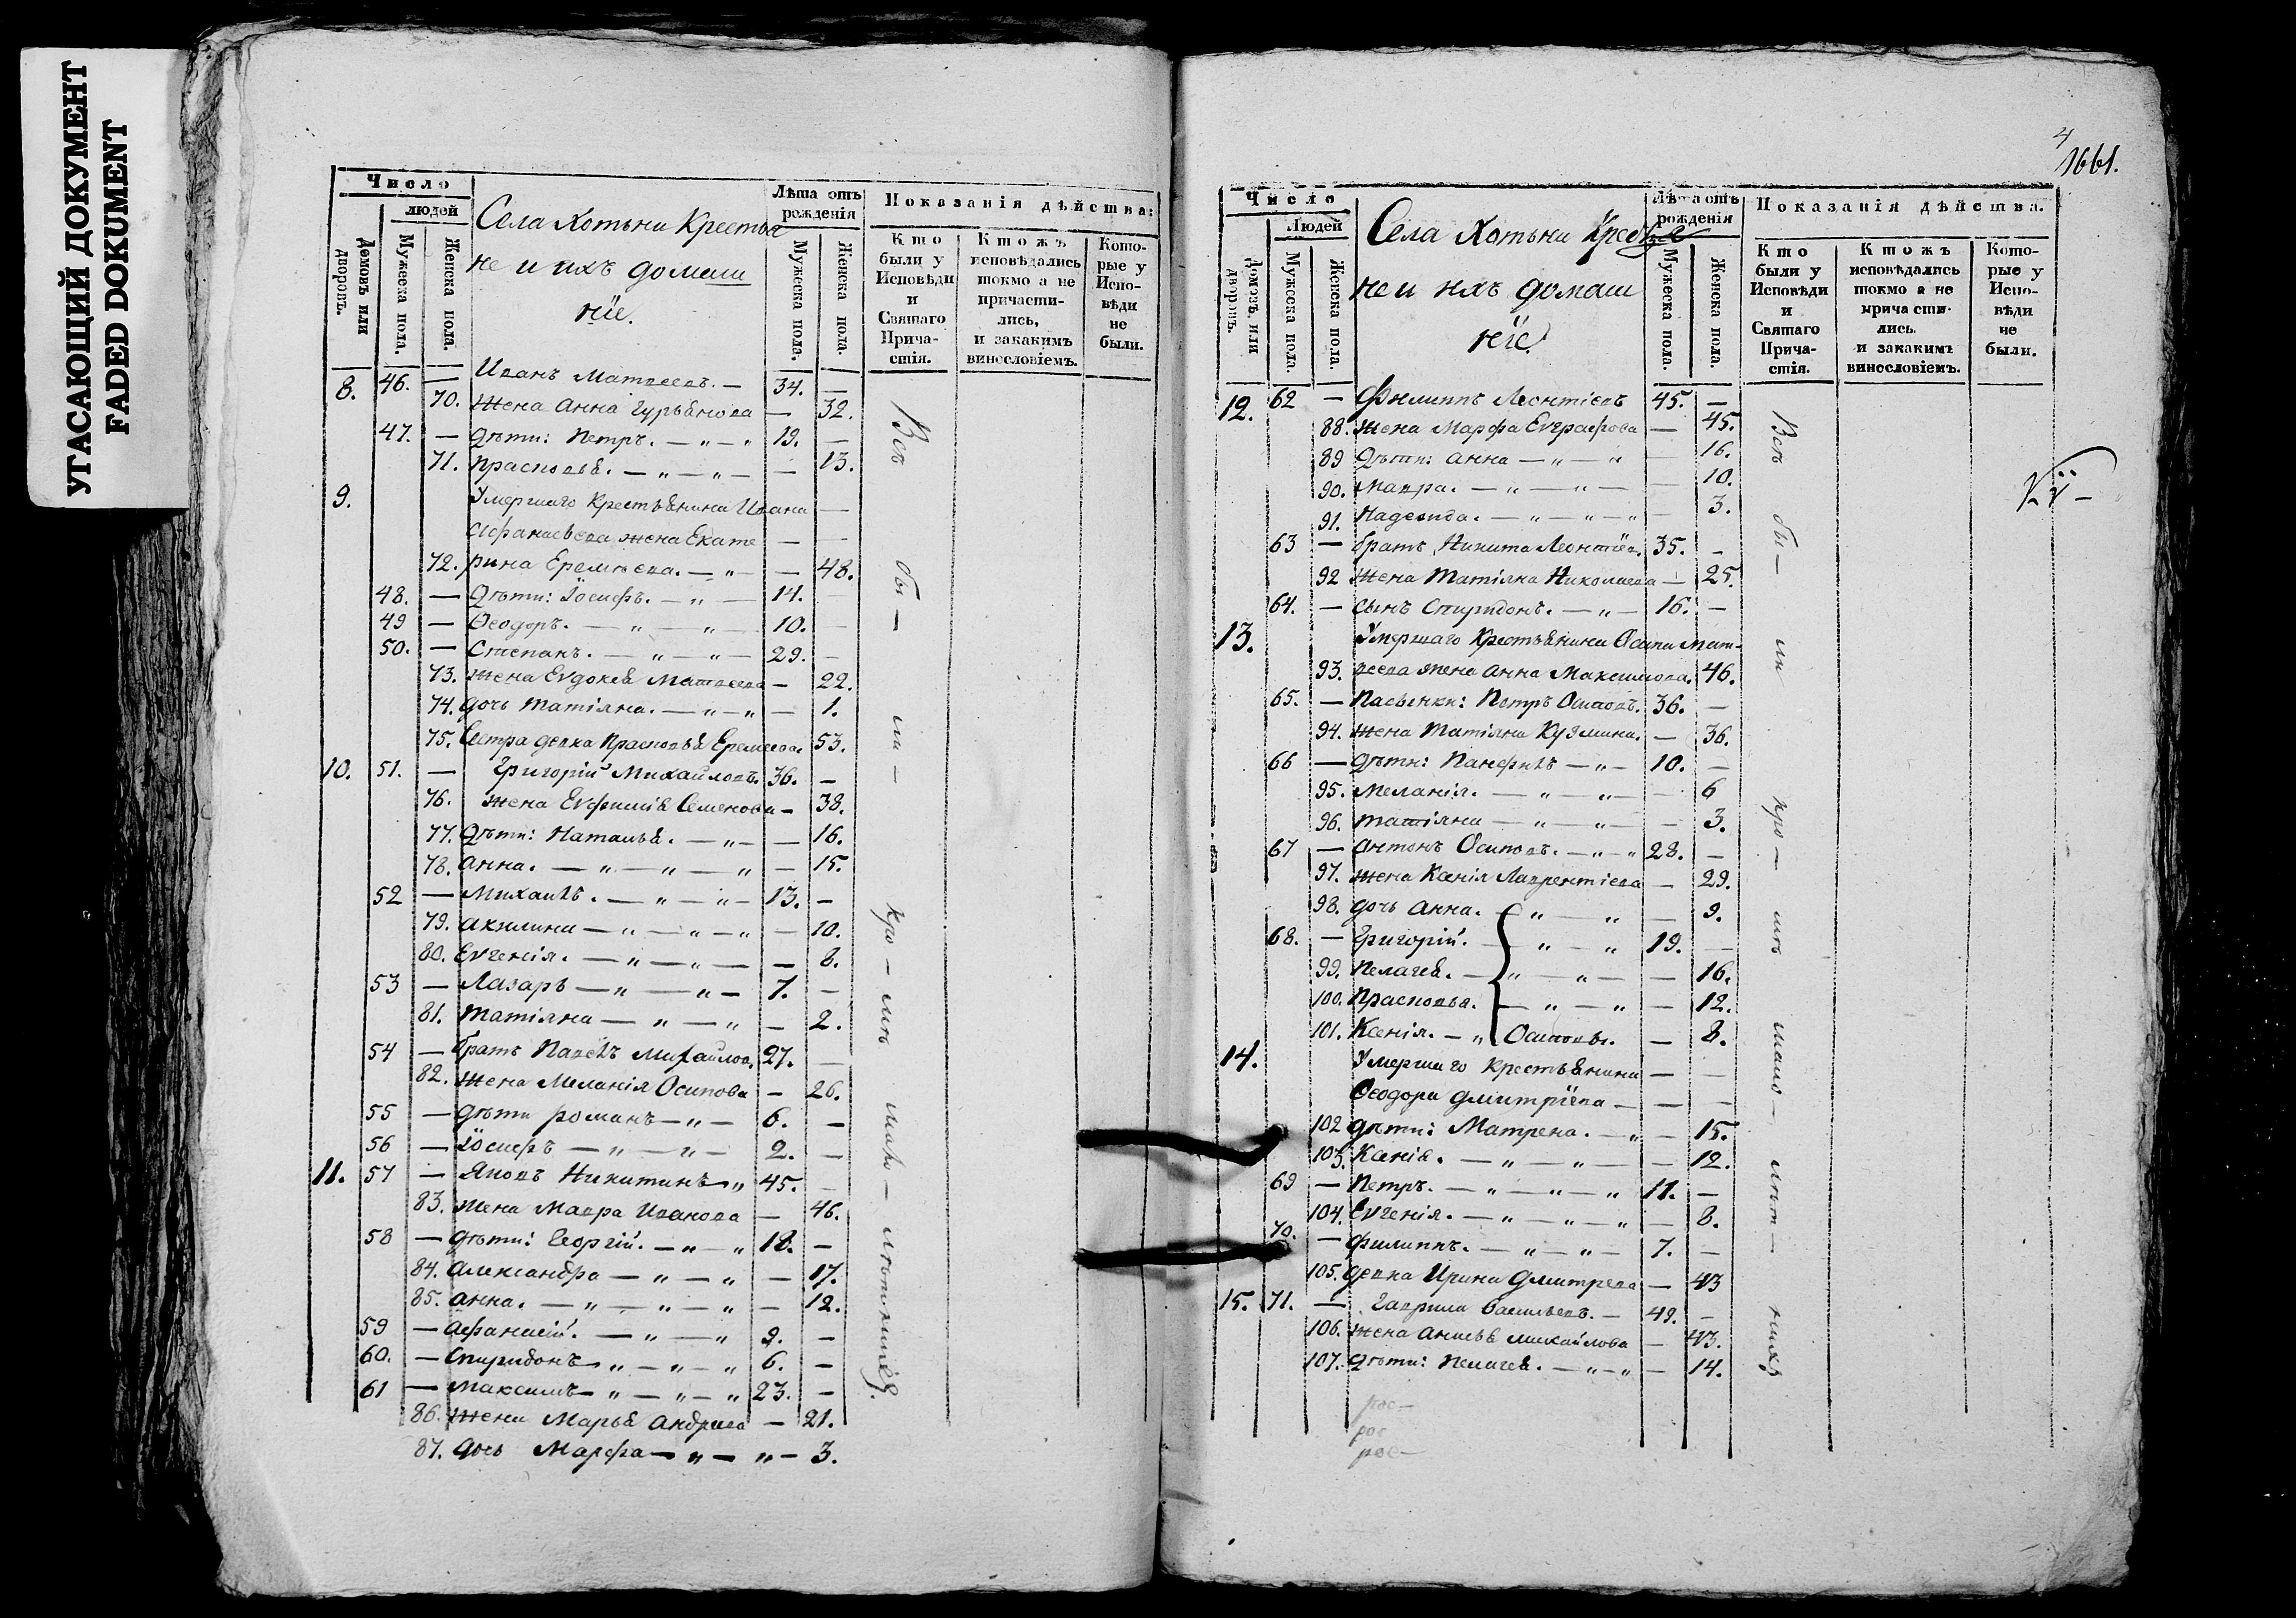 УГАСАЮЩИЙ ДОКУМЕНТ
FADED DOKUMENT
Число
людей
Домовъ или дворовъ.
Мужеска пола.
Женска пола.
Села Хотьни Крестья
не и ихъ домаш
ніе.
Лѣта отъ рожденія
Мужеска пола.
Женска пола.
Показанія дѣйства:
Кто были у Исповѣди и Святаго Прича-стія.
Ктожъ исповѣдались токмо а не причасти-лись, и закакимъ винословіемъ.
Кото-рые у Испо-вѣди не были.
8. 46. — Иванъ Матвеевъ. — 34. —
70. Жена Анна Гурьянова — 32.
47. — Дѣти: Петръ. — „ — „ 19. —
71. Прасковья. — „ — „ — — 13.
9. Умершаго Крестьянина Ивана —
Афанасьева жена Екате — —
72. рина Еремѣева. — „ — — 48.
48. — Дѣти: Іосифъ. — „ — 14. —
49 — Ѳеодоръ. — „ — „ — 10. —
50. — Степанъ. — „ — „ — 29. —
73. Жена Еѵдокея Матвеева — 22.
74. дочь Татіяна. — „ — „ — 1.
75. Сестра девка Прасковья Еремеева. 53.
10. 51. — Григорій Михайловъ. 36. —
76. жена Еѵфимія Семенова — 38.
77. Дѣти: Наталья. — „ — — 16.
78. Анна. — „ — „ — „ — 15.
52 — Михаилъ. — „ — „ — 13. —
79. Акилина — „ — „ — „ — 10.
80. Еѵгенія. — „ — „ — — 8.
53 — Лазаръ — „ — „ — 7. —
81. Татіяна — „ — „ — 2.
54 — братъ Павелъ Михайлов. 27. —
82. Жена Меланія Осипова — 26.
55 — дѣти Романъ — „ — 6. —
56 — Іосифъ — „ — „ — 2. —
11. 57 — Яковъ Никитинъ — „ 45. —
83. жена Мавра Иванова — 46.
58 — дѣти: Георгій. — „ — „ 18. —
84. Александра — „ — „ — 17.
85. Анна. — „ — „ — „ — 12.
59 — Афанасій. — „ — „ 9. —
60. — Спиридонъ — „ — „ — „ 6. —
61 — Максимъ — „ — „ — „ 23. —
86. Жена Марья Андреева — 21.
87. дочь Марфа — „ — „ — 3.
Всѣ бы — ли — кро — мѣ мало — лѣтнихъ.
4
1661.
Число
Людей
Домовъ или дворовъ.
Мужеска пола
Женска пола.
Села Хотьни Крестья
не и ихъ домаш
ніе.
Лѣта отъ рожденія
Мужеска пола.
Женска пола.
Показанія дѣйства.
Кто были у Исповѣди и Святаго Прича-стія.
Ктожъ исповѣдались токмо а не прича сти-лись. и закакимъ винословіемъ.
Кото-рые у Испо-вѣди не были.
12. 62 — Филиппъ Леонтіевъ 45. —
88. жена Марфа Еѵграфова — 45.
89 Дѣти: Анна — „ — „ — 16.
90. Мавра. — „ — „ — — 10.
91. Надежда. — „ — „ — „ — 3.
63 — братъ Никита Леонтіев. 35. —
92 Жена Татіяна Николаева — 25.
64. — сынъ Спиридонъ. — „ — 16. —
13. Умершаго Крестьянина Осипа Мат-
93. веева жена Анна Максимова. 46.
65. — Пасынки: Петръ Осиповъ. 36. —
94. Жена Татіяна Кузмина. — 36.
66 — дѣти: Панфилъ — „ — 10. —
95. Меланія. — „ — „ — — 6
96. Татіяна — „ — „ — — 3.
67 — Антонъ Осиповъ. — „ — „ 28. —
97. жена Ксенія Лаврентіева — 29.
98. дочь Анна. — „ — „ — 9.
68. — Григорій. — „ — „ 19. —
99. Пелагея. — „ — „ — — 16.
100. Прасковья. — „ — „ — 12.
101. Ксенія. — „ Осиповы. — 8.
14. Умершаго Крестьянина — —
Ѳеодора Дмитріева — — —
102 дѣти: Матрена. — „ — 15.
103. Ксенія. — „ — „ — — 12.
69 — Петръ. — „ — „ — „ 11. —
104. Еѵгенія. — „ — „ — „ — 8.
70. — Филиппъ. — „ — „ — 7. —
105. девка Ирина Дмитрева — 43
15. 71. — Гаврила Васильевъ. — 49. —
106. жена Анисья Михайлова — 43.
107. Дѣти: Пелагея. — „ — „ — 14.
Всѣ бы — ли кро — мѣ мало — лѣт — нихъ
рос —
рос
рос —